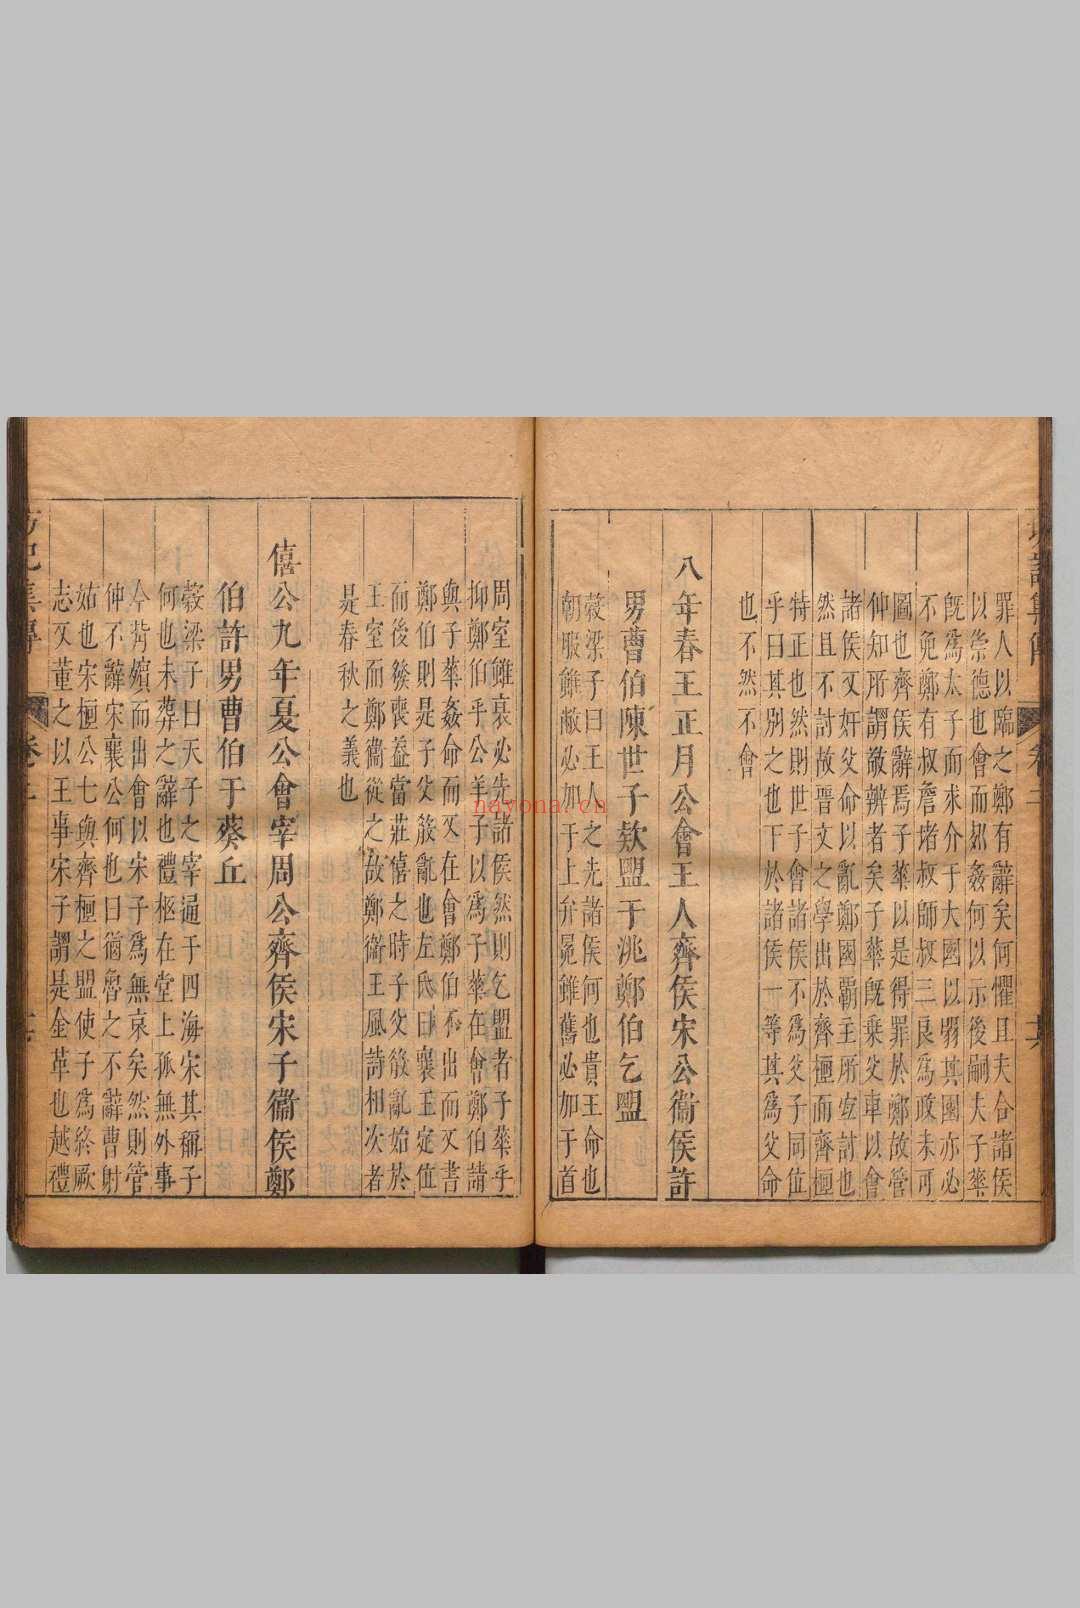 罪人以臨之鄭有辭矣何懼且夫合諸侯
以崇德也會而列姦何以示後嗣夫子華
旣爲太子而求介于大國以弱其國亦必
不免鄭有叔詹堵叔師叔三良爲政未可
圖也齊侯辭焉子華以是得罪於鄭故管
仲知所謂敬辨者矣子華旣棄父車以會
諸侯又奸父命以亂鄭國覇主所宜討也
然且不討故晋文之學出於齊桓而齊桓
特正也然則世子會諸侯不爲父子同位
乎曰其別之也下於諸侯一等其爲父命
也不然不會
八年春王正月公會王人齊侯宋公衞侯許
男曹伯陳世子欵盟于洮鄭伯乞盟
穀梁子曰王人之先諸侯何也貴王命也
朝服雖敝必加于上弁冕雖舊必加于首
周室雖衰必先諸侯然則乞盟者子華乎
抑鄭伯乎公羊子以爲子華在會鄭伯請
與子華姦命而又在會鄭伯不出而又書
鄭伯則是子父殽亂也左氏曰襄王定位
而後發喪蓋當莊僖之時子父殽亂始於
王室而鄭衞從之故鄭衞王風詩相次者
是春秋之義也
僖公九年夏公會宰周公齊侯宋子衞侯鄭
伯許男曹伯于葵丘
穀梁子曰天子之宰通于四海宋其稱子
何也未葬之辭也禮柩在堂上孤無外事
今背殯而出會以宋子爲無哀矣然則管
仲不辭宋襄公何也曰猶魯之不辭曹射
姑也宋桓公七與齊桓之盟使子爲終厥
志又董之以王事宋子謂是金革也越禮
坊記集傳
卷二
nayona.cn